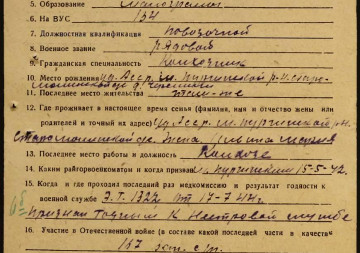 5. Образование малограмот.
6. На ВУС 134
7. Должностная квалификация повозочной
8. Военное звание рядовой
9. Гражданская специальность Колхозник
10. Место рождения уд. Асср. м. пургинской р-н старо-
11. Последнее место жительства там-же
12. Где проживает в настоящее время семья (фамилия, имя и отчество жены или
родителей и точный их адрес) уд. Асср. м. пургинской р-н.
жена
14. Последнее место работы и должность Колхозе
14. Каким райгорвоенкоматом и когда призван м. пургинским 15-5-42.
15. Когда и где проходил последний раз медкомиссию и результат годности к
военной службе Э.Г. 1322 от 17-7-44 г.
признан годным к нестровой службе
16. Участие в Отечественной войне (в составе какой последней части в качеств
167 зап. с.п.